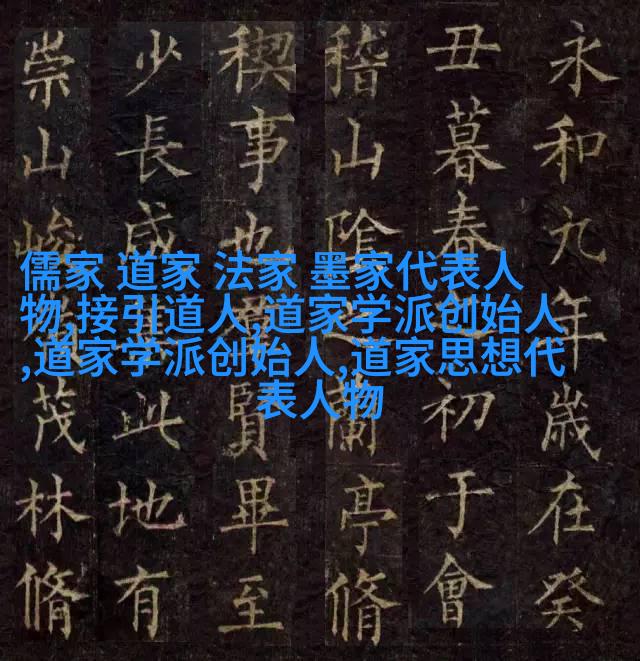 儒家 道家 法家 墨家代表人
物,接引道人,道家学派创始人
,道家学派创始人,道家思想代
表人物
永和九年歲在癸
丑暮春之初于會
稽山陰之蘭亭脩
稧事也羣賢畢至
少長咸此地有
崇山峻領茂林脩